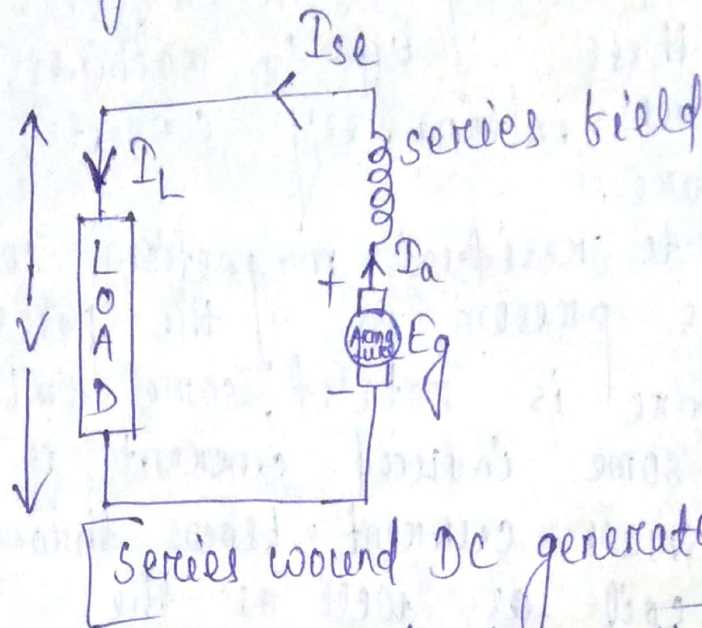 Ise
series field
IL
L
O
A
D
+
Ia
Eg
-
Series wound DC generat